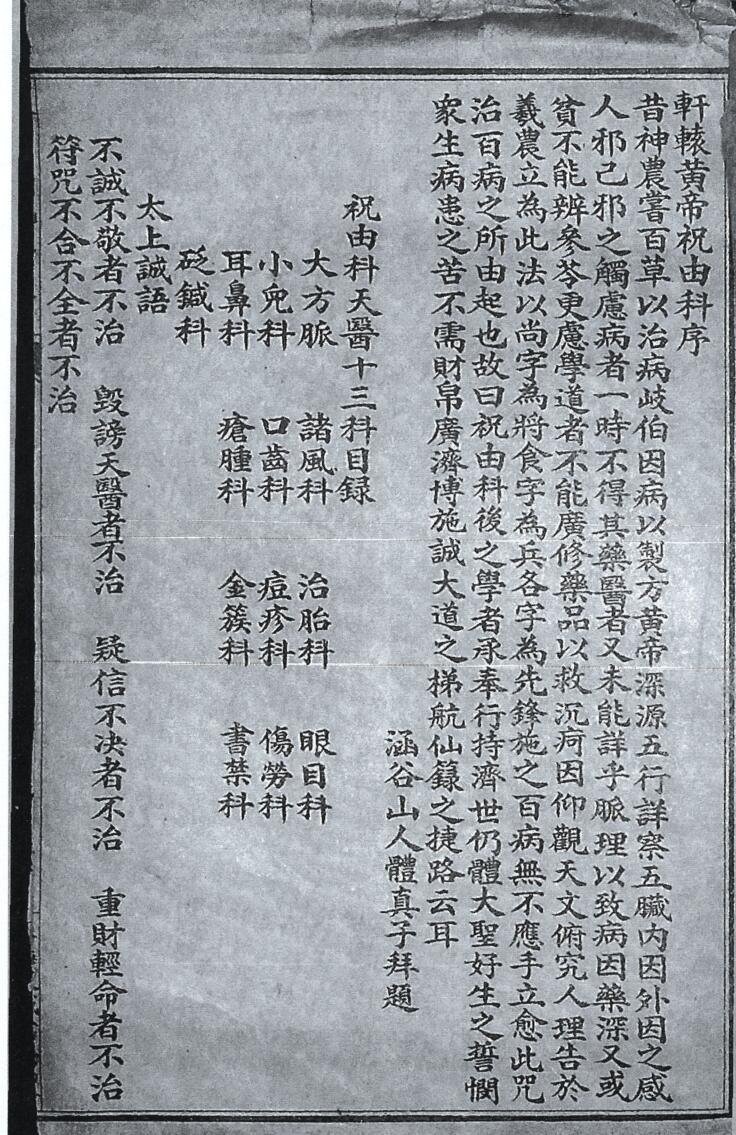 軒轅黄帝祝由科序
昔神農嘗百草以治病岐伯因病以製方黄帝深源五行詳察五臟内因外因之感
人邪己邪之觸慮病者一時不得其藥醫者又未能詳乎脈理以致病因藥深又或
貧不能辨參苓更慮學道者不能廣修藥品以救沉疴因仰觀天文俯究人理告於
羲農立為此法以尚字為將食字為兵各字為先鋒施之百病無不應手立愈此咒
治百病之所由起也故曰祝由科後之學者承奉行持濟世仍體大聖好生之誓憫
衆生病患之苦不需財帛廣濟博施誠大道之梯航仙籙之捷路云耳
涵谷山人體真子拜題
祝由科天醫十三科目録
大方脈 諸風科 治胎科 眼目科
小兒科 口齒科 痘疹科 傷勞科
耳鼻科 瘡腫科 金簇科 書禁科
砭鍼科
太上誠語
不誠不敬者不治 毁謗天醫者不治 疑信不决者不治 重財輕命者不治
符咒不合不全者不治